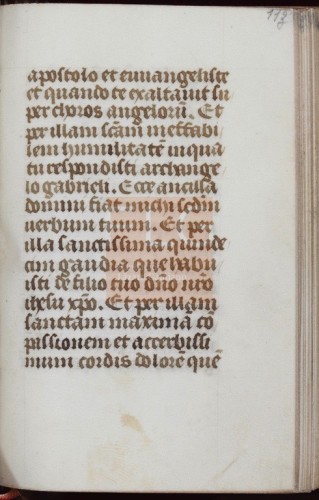 113
apostolo et euuangeliste
et quando te exaltauit su
per choros angelorū. Et
per illam scām ineffabi
lem humilitatē in qua
tu respondisti archange
lo gabrieli. Ecce ancilla
domini fiat michi scdm
uerbum tuum. Et per
illa sanctissima quinde
cim gaudia que habu
isti de filio tuo dño nr̄o
ihesu xp̄o. Et per illam
sanctam maximā cō
passionem et acerbissi
mum cordis dolorē quē